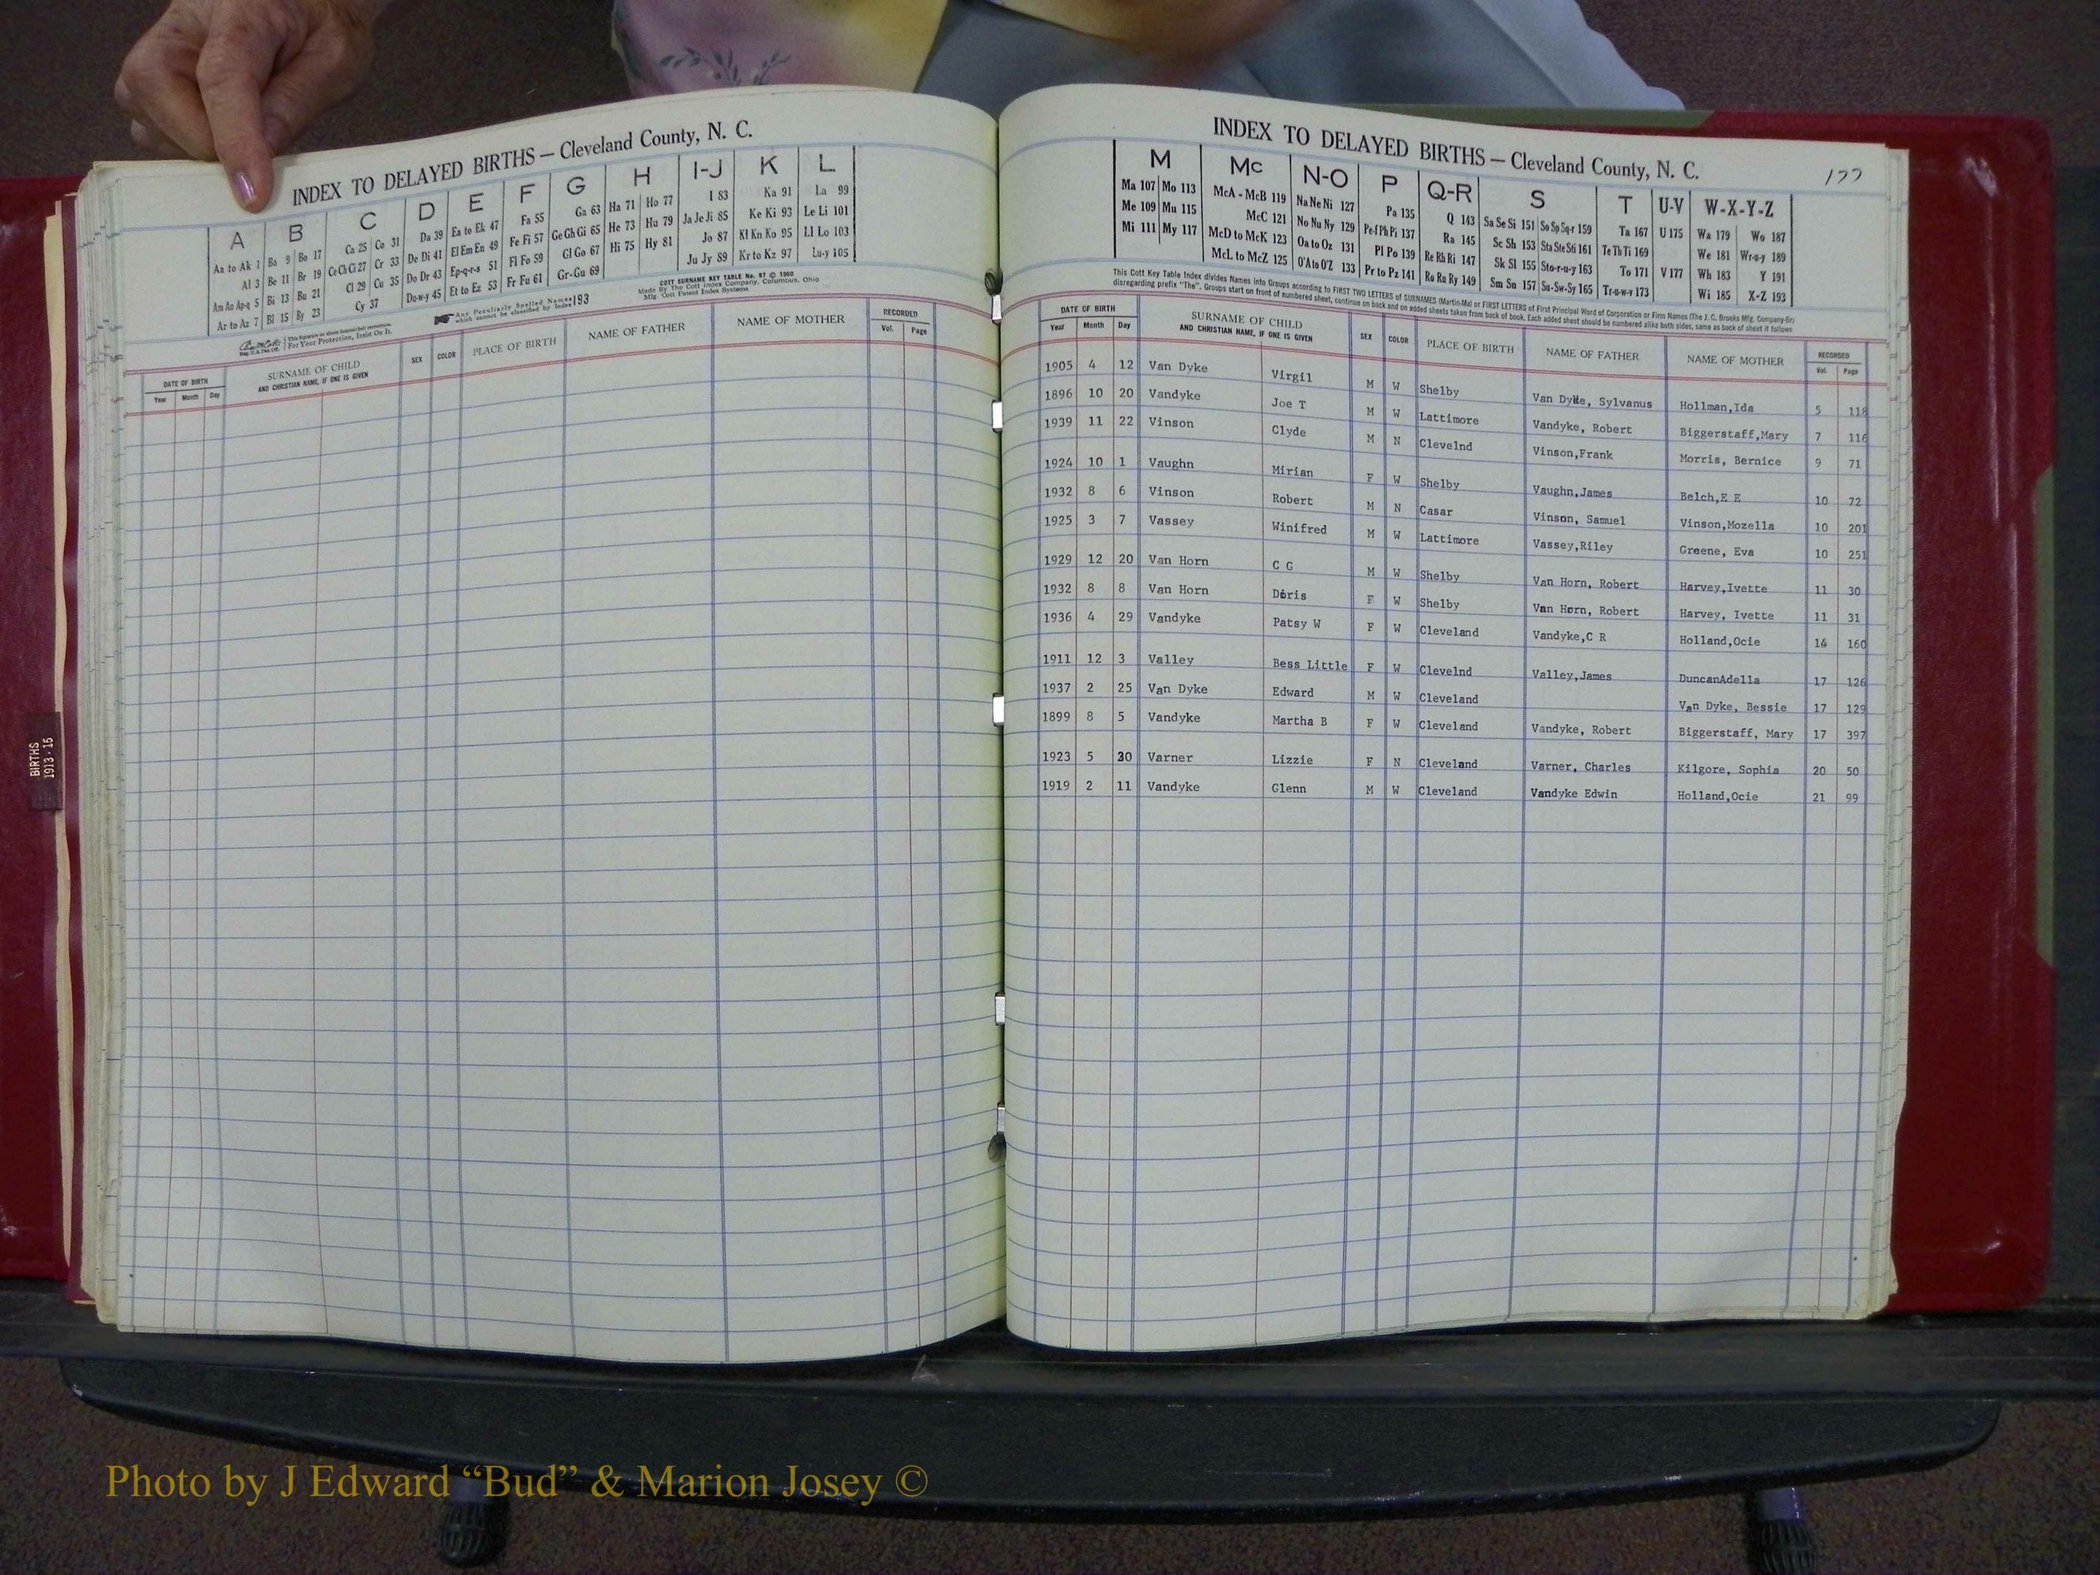 INDEX TO DELAYED BIRTHS — Cleveland County, N. C.
A B C D E F G H I-J K L
Aa to Ak 1 Ba 9 Bo 17 Ca 25 Co 31 Da 39 Ea to Ek 47 Fa 55 Ga 63 Ha 71 Ho 77 I 83 Ka 91 La 99
Al 3 Be 11 Br 19 Ce Ch Ci 27 Cr 33 De Di 41 El Em En 49 Fe Fi 57 Ge Gh Gi 65 He 73 Hu 79 Ja Je Ji 85 Ke Ki 93 Le Li 101
Am An Ap-q 5 Bi 13 Bu 21 Cl 29 Cu 35 Do Dr 43 Ep-q-r-s 51 Fl Fo 59 Gl Go 67 Hi 75 Hy 81 Jo 87 Kl Kn Ko 95 Ll Lo 103
Ar to Az 7 Bl 15 By 23 Cy 37 Du-w-y 45 Et to Ez 53 Fr Fu 61 Gr-Gu 69 Ju Jy 89 Kr to Kz 97 Lu-y 105
For Your Protection, Insist On It.
Any Peculiarly Spelled Names which cannot be classified by Index 193
COTT SURNAME KEY TABLE No. 97 © 1960
Made By The Cott Index Company, Columbus, Ohio
Mfg. Cott Patent Index Systems
DATE OF BIRTH SURNAME OF CHILD SEX COLOR PLACE OF BIRTH NAME OF FATHER NAME OF MOTHER RECORDED
Year Month Day AND CHRISTIAN NAME, IF ONE IS GIVEN Vol. Page
BIRTHS
1913-15
INDEX TO DELAYED BIRTHS — Cleveland County, N. C. 177
M Mc N-O P Q-R S T U-V W-X-Y-Z
Ma 107 Mo 113 McA - McB 119 Na Ne Ni 127 Pa 135 Q 143 Sa Se Si 151 So Sp Sq-r 159 Ta 167 U 175 Wa 179 Wo 187
Me 109 Mu 115 McC 121 No Nu Ny 129 Pe-f Ph Pi 137 Ra 145 Sc Sh 153 Sta Ste Sti 161 Te Th Ti 169 We 181 Wr-u-y 189
Mi 111 My 117 McD to McK 123 Oa to Oz 131 Pl Po 139 Re Rh Ri 147 Sk Sl 155 Sto-r-u-y 163 To 171 V 177 Wh 183 Y 191
McL to McZ 125 O'A to O'Z 133 Pr to Pz 141 Ro Ru Ry 149 Sm Sn 157 Su-Sw-Sy 165 Tr-u-w-y 173 Wi 185 X-Z 193
This Cott Key Table Index divides Names into Groups according to FIRST TWO LETTERS of SURNAMES (Martin-Ma) or FIRST LETTERS of First Principal Word of Corporation or Firm Names (The J. C. Brooks Mfg. Company-Br)
disregarding prefix "The". Groups start on front of numbered sheet, continue on back and on added sheets taken from back of book. Each added sheet should be numbered alike both sides, same as back of sheet it follows
DATE OF BIRTH SURNAME OF CHILD SEX COLOR PLACE OF BIRTH NAME OF FATHER NAME OF MOTHER RECORDED
Year Month Day AND CHRISTIAN NAME, IF ONE IS GIVEN Vol. Page
1905 4 12 Van Dyke Virgil M W Shelby Van Dyke, Sylvanus Hollman,Ida 5 118
1896 10 20 Vandyke Joe T M W Lattimore Vandyke, Robert Biggerstaff,Mary 7 116
1939 11 22 Vinson Clyde M N Clevelnd Vinson,Frank Morris, Bernice 9 71
1924 10 1 Vaughn Mirian F W Shelby Vaughn,James Belch,E E 10 72
1932 8 6 Vinson Robert M N Casar Vinson, Samuel Vinson,Mozella 10 201
1925 3 7 Vassey Winifred M W Lattimore Vassey,Riley Greene, Eva 10 251
1929 12 20 Van Horn C G M W Shelby Van Horn, Robert Harvey,Ivette 11 30
1932 8 8 Van Horn Doris F W Shelby Van Horn, Robert Harvey, Ivette 11 31
1936 4 29 Vandyke Patsy W F W Cleveland Vandyke,C R Holland,Ocie 14 160
1911 12 3 Valley Bess Little F W Clevelnd Valley,James DuncanAdella 17 126
1937 2 25 Van Dyke Edward M W Cleveland Van Dyke, Bessie 17 129
1899 8 5 Vandyke Martha B F W Cleveland Vandyke, Robert Biggerstaff, Mary 17 397
1923 5 20 Varner Lizzie F N Cleveland Varner, Charles Kilgore, Sophia 20 50
1919 2 11 Vandyke Glenn M W Cleveland Vandyke Edwin Holland,Ocie 21 99
Photo by J Edward “Bud” & Marion Josey ©